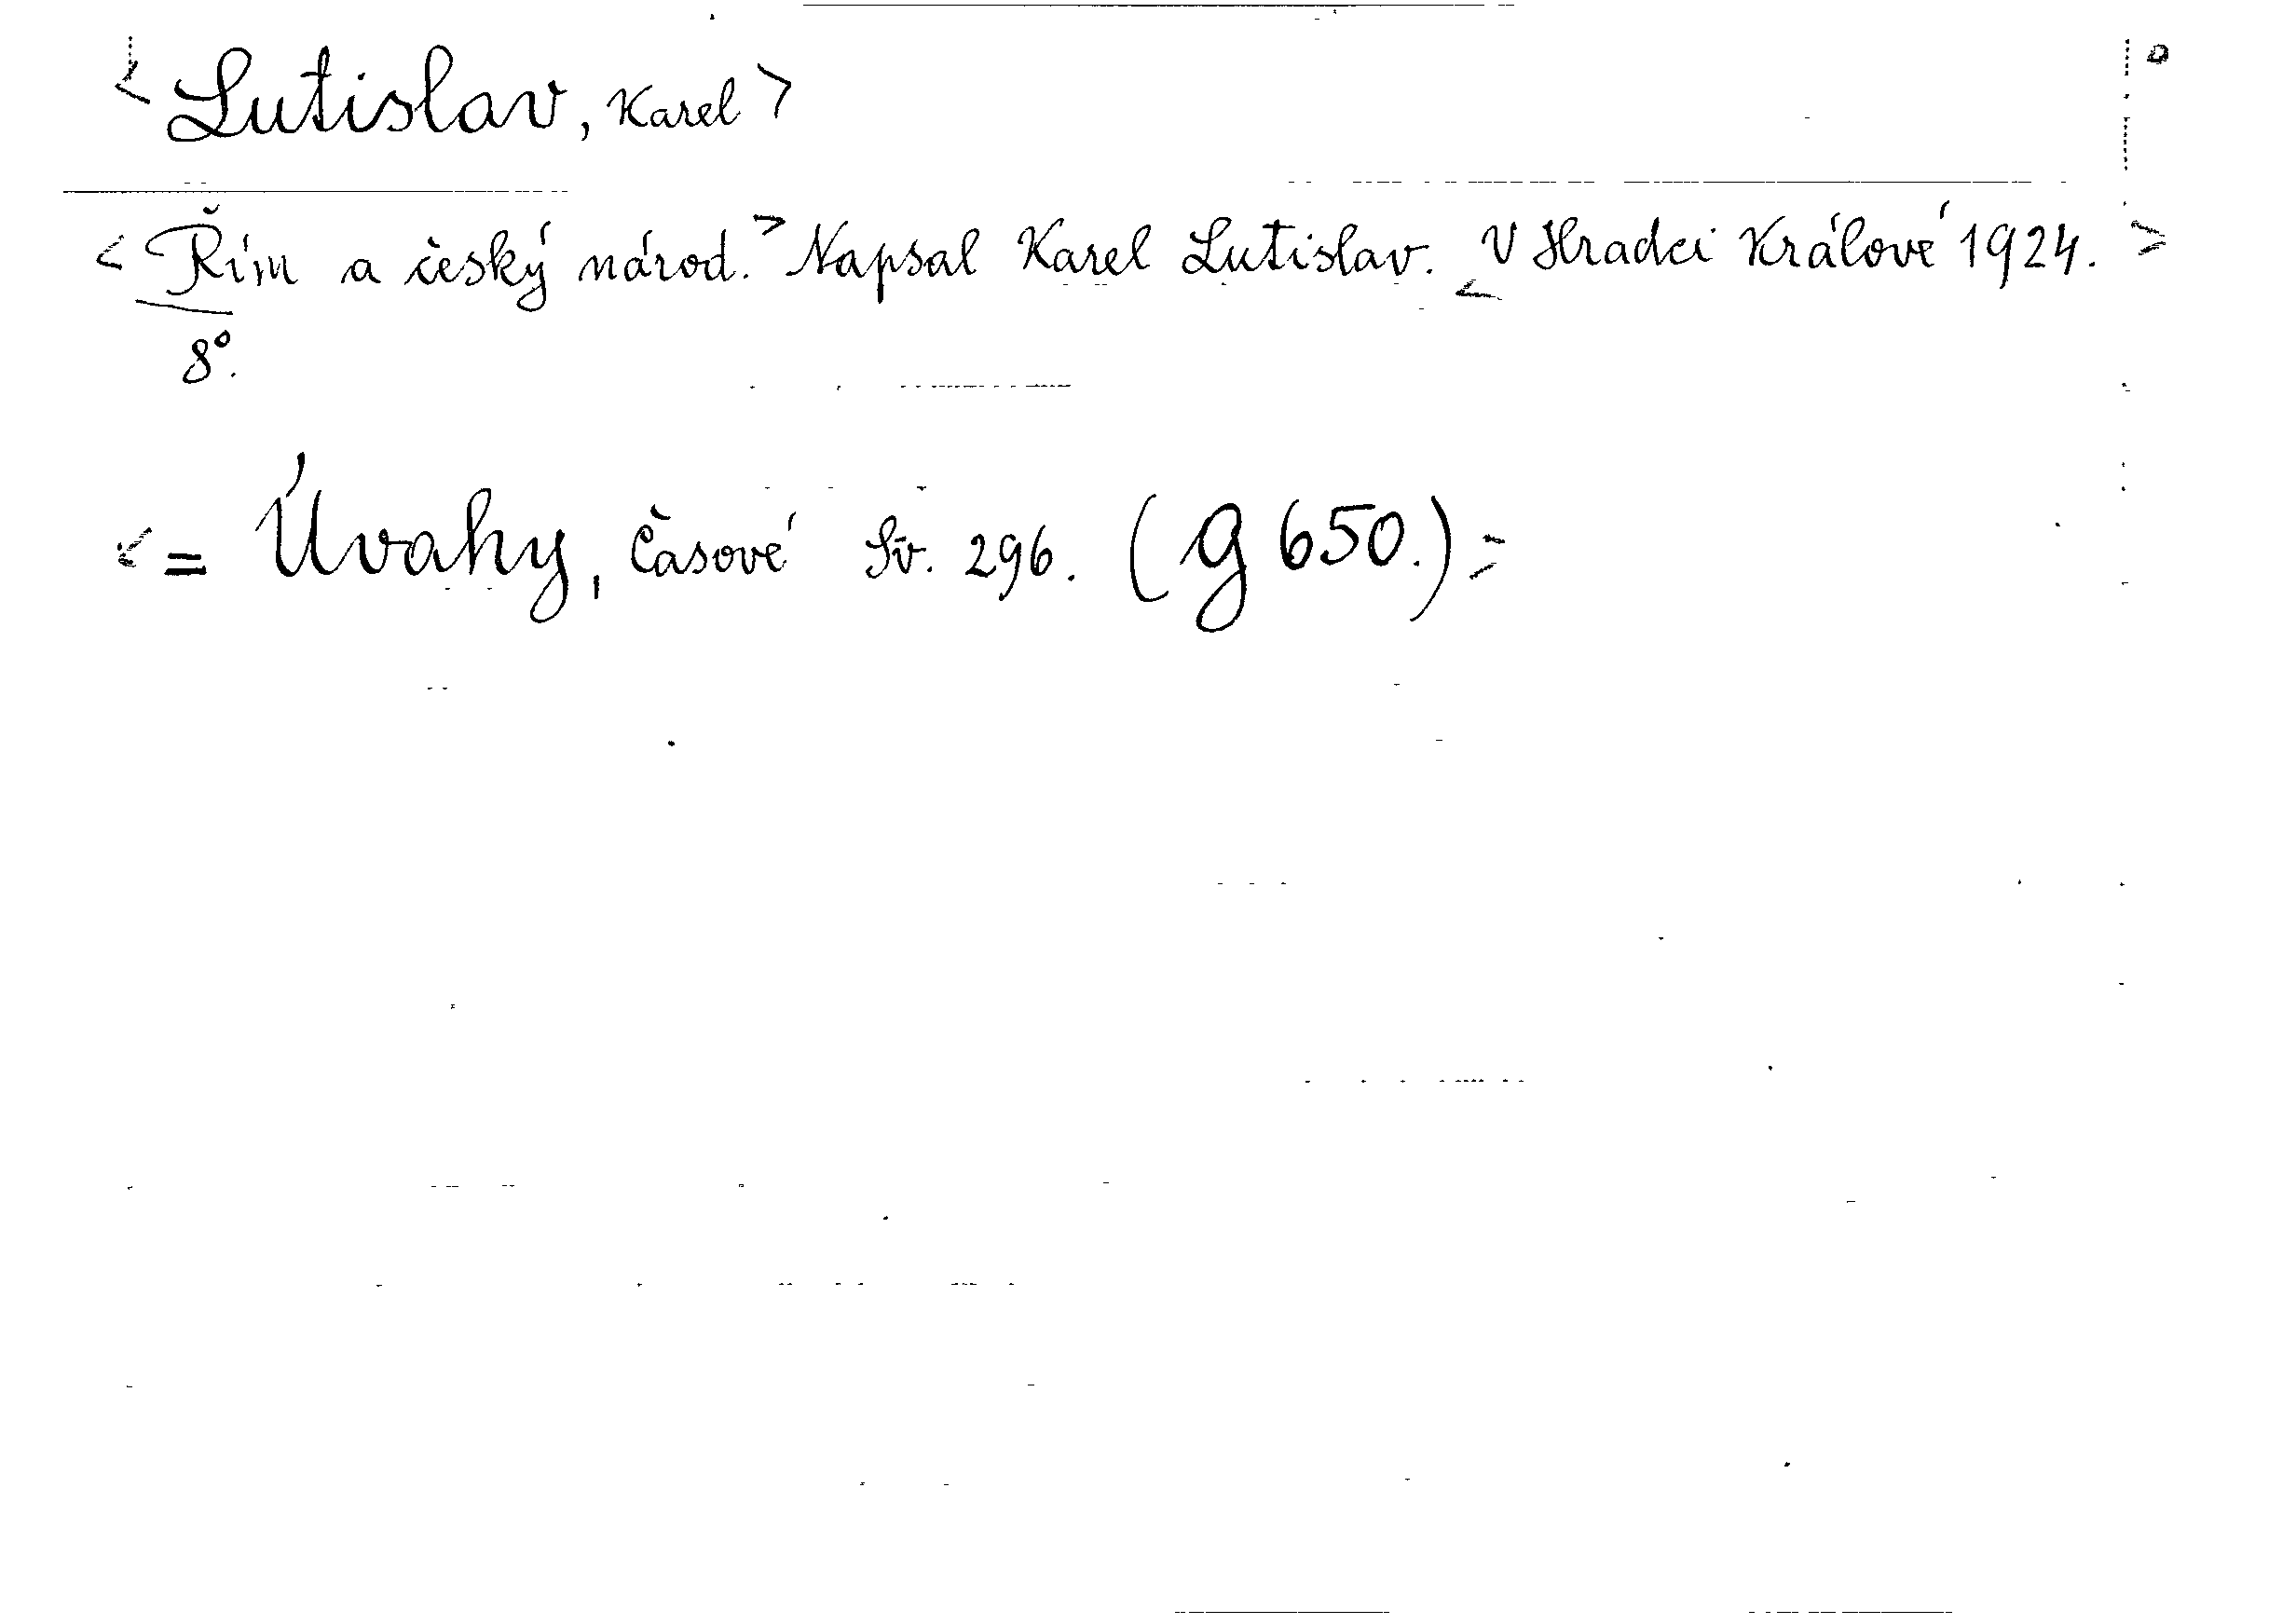 <Lutislav, Karel>
<Řím a český národ.> Napsal Karel Lutislav. <V Hradci Králové 1924.>
8°.
<= Úvahy, časové Sv. 296. (g 650.)>